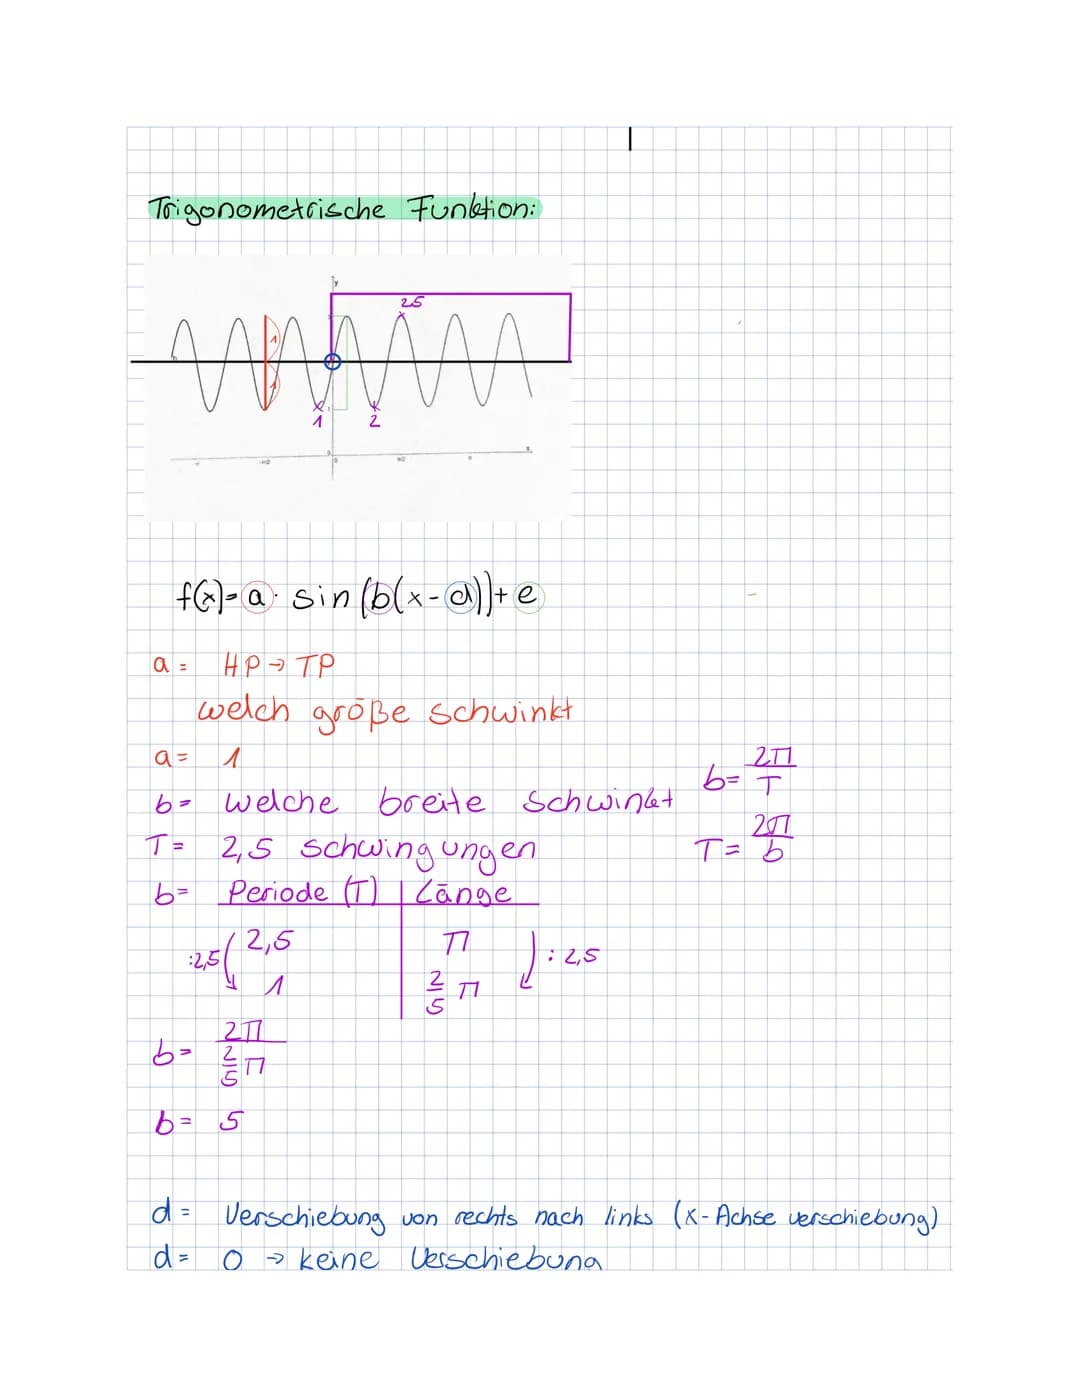 Trigonometrische Funktion:
y
2.5
1
1
1
2
0
-π
-π/2
0
π/2
π
f(x)=a· sin(b(x-d))+e
a = HP → TP
welch größe schwinkt
a = 1
b = welche breite schwinkt
b= 2π/T
T= 2,5 schwingungen
T= 2π/b
b= Periode (T) | Länge
:2,5 ( 2,5 | π ) : 2,5
1 | 2/5 π
b= 2π / 2/5 π
b= 5
d= Verschiebung von rechts nach links (x-Achse verschiebung)
d= 0 → keine Verschiebung